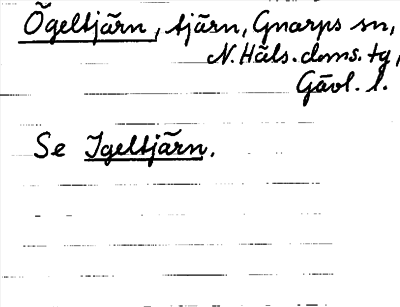 Ögeltjärn, tjärn, Gnarps sn,
N. Häls. doms. tg,
Gävl. l.
Se Igeltjärn.